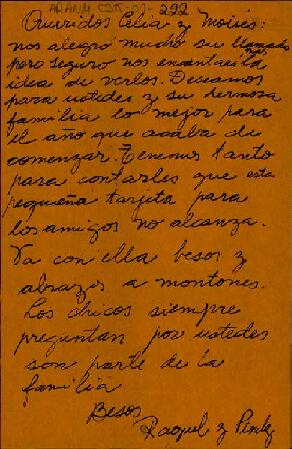 Queridos Celia y Moisés:
nos alegró mucho su llamado
pero seguro nos encantaría la
idea de verlos. Deseamos
para ustedes y su hermosa
familia lo mejor para
el año que acaba de
comenzar. Tenemos tanto
para contarles que esta
pequeña tarjeta para
los amigos no alcanza.
Va con ella besos y
abrazos a montones.
Los chicos siempre
preguntan por ustedes
son parte de la
familia
Besos
Raquel y